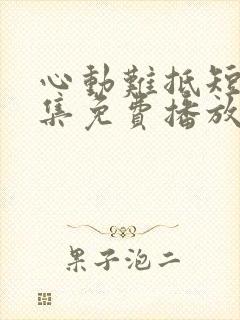 心動難抵短
集免費播放
果子泡二